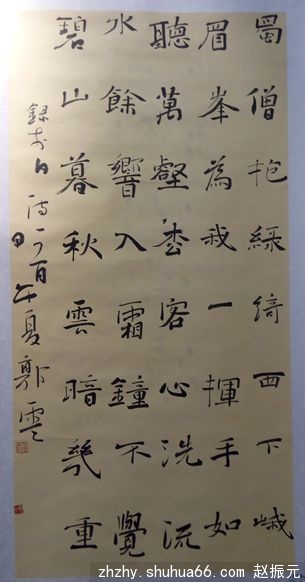 蜀僧抱綠綺西下峨
眉峯為我一揮手如
聽萬壑枩客心洗流
水餘響入霜鐘不覺
碧山暮秋雲暗幾重
錄李白诗一首甲午夏郭雲
zhzhy.shuhua66.com 赵振元